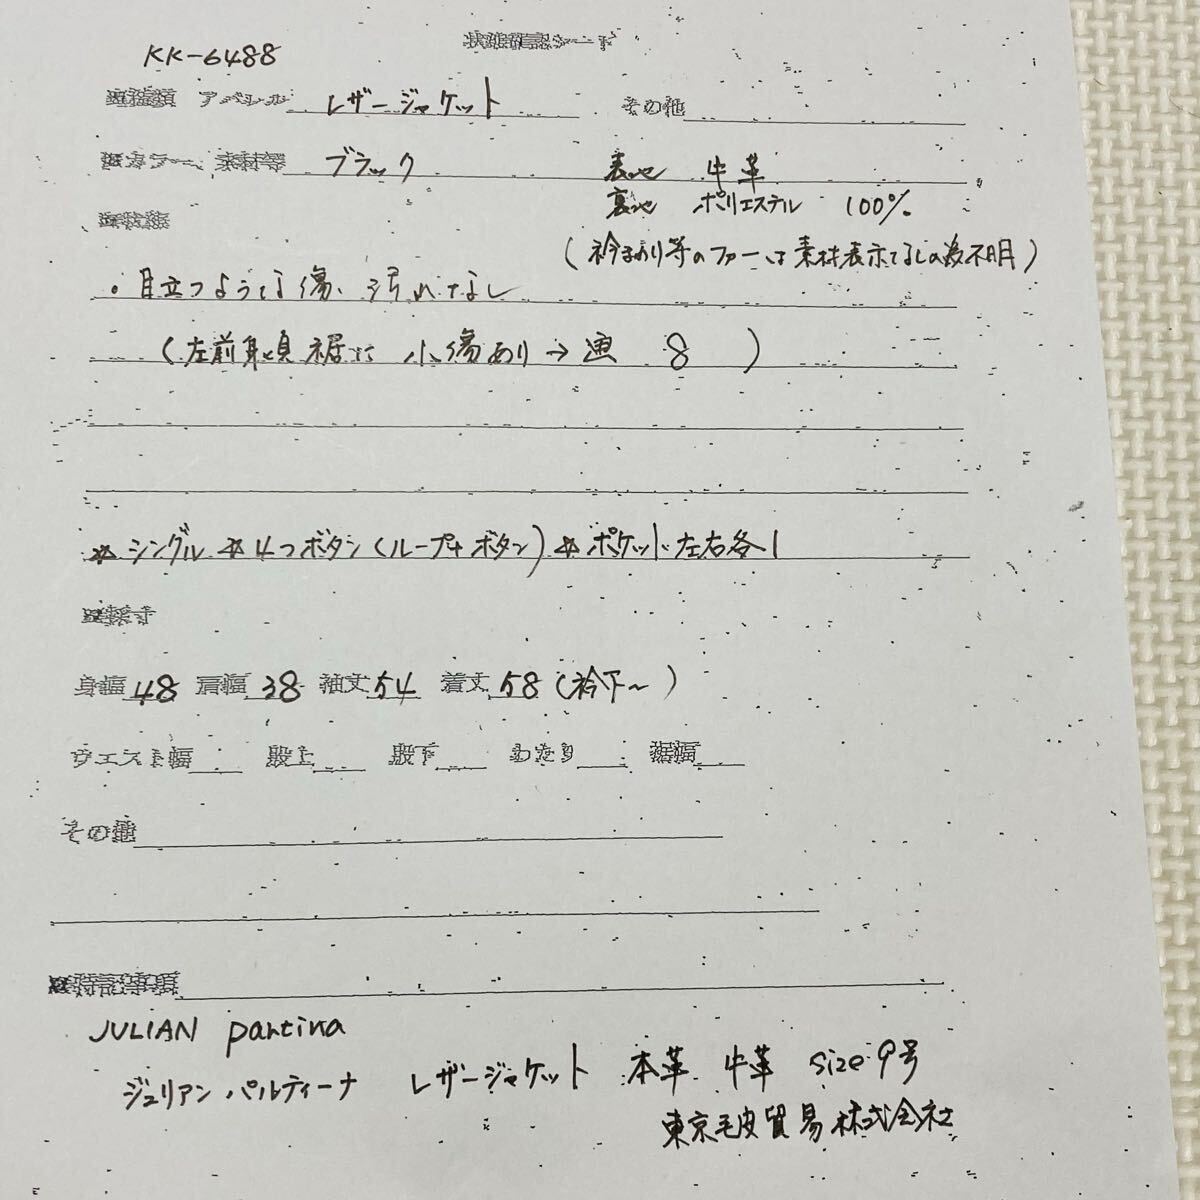 状態確認シート
KK-6488
アパレル レザージャケット その他
カラー、素材等 ブラック 表地 牛革
裏地 ポリエステル 100%
(衿まわり等のファーは素材表示なしの為不明)
・目立つような傷、汚れなし
(左前身頃裾に小傷あり→画 8 )
☆シングル ☆4つボタン(ループ+ボタン) ☆ポケット左右各1
採寸
身幅 48 肩幅 38 袖丈 54 着丈 58 (衿下~)
ウエスト幅 股上 股下 わたり 裾幅
その他
特記事項
JULIAN partina
ジュリアン パルティーナ レザージャケット 本革 牛革 size 9号
東京毛皮貿易株式会社